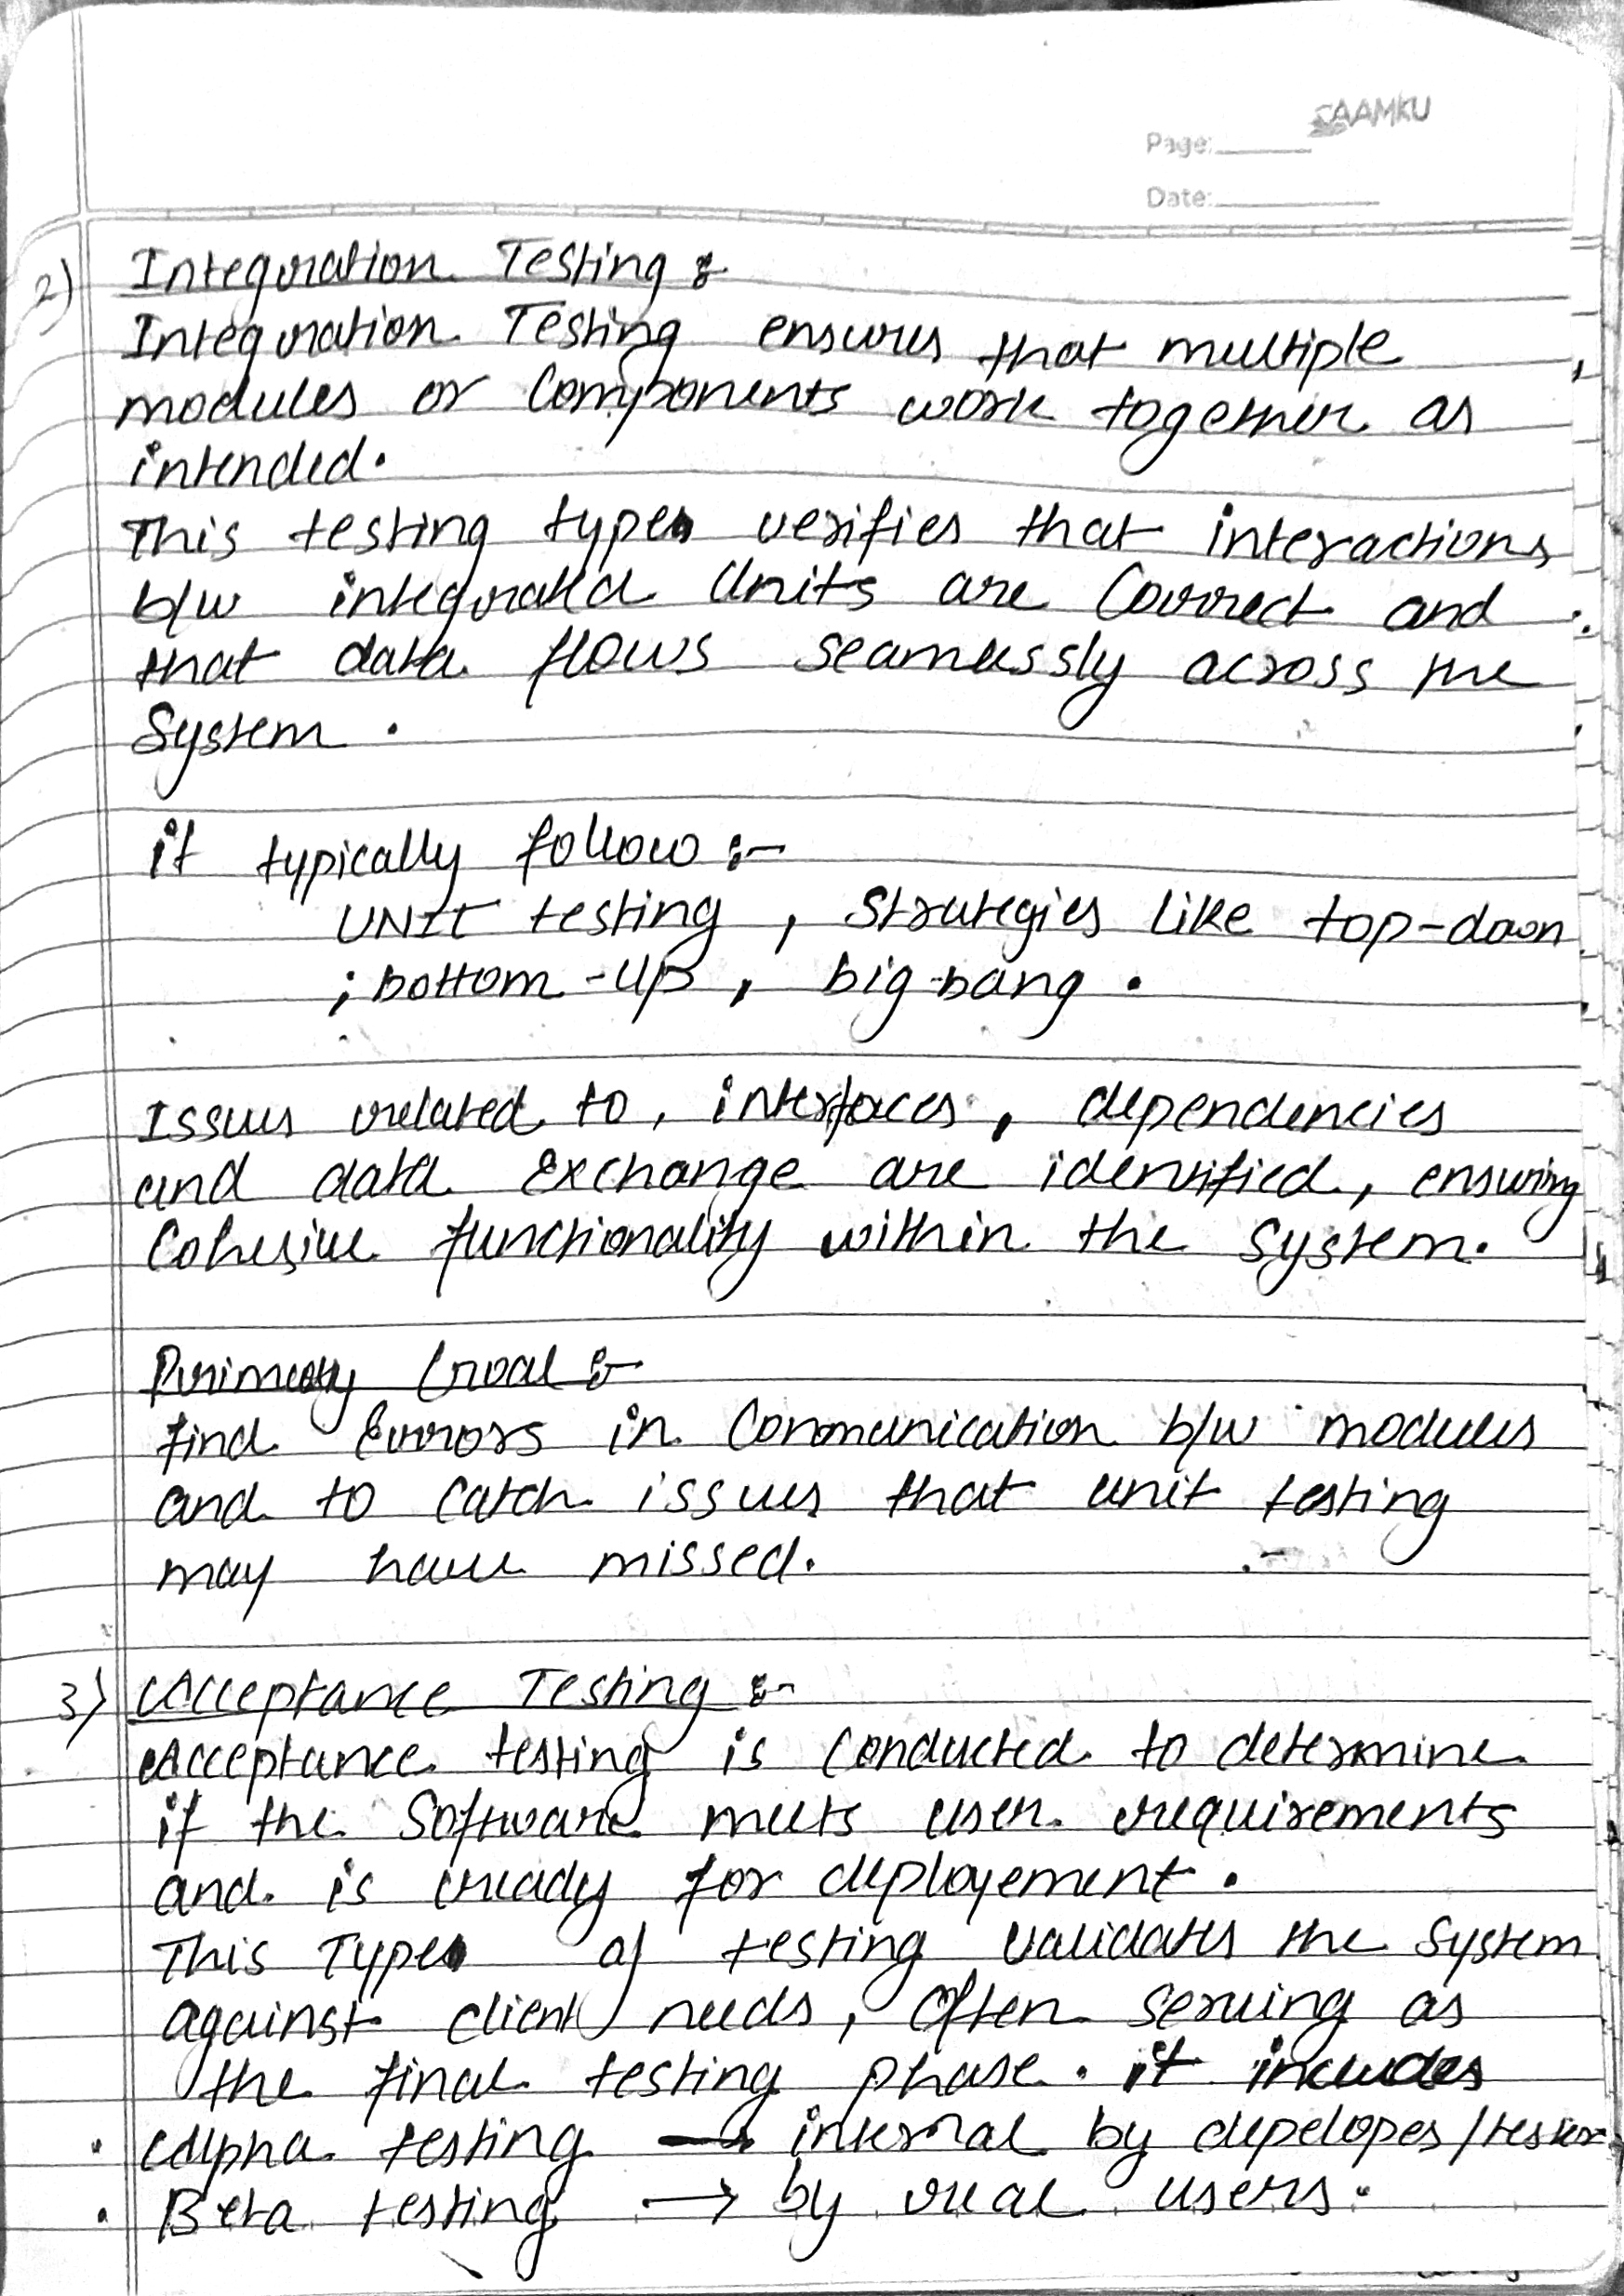 SAAMKU
Page:
Date:
2) Integration Testing :
Integration Testing ensures that multiple
modules or components work together as
intended.
This testing type verifies that interactions
b/w integrated Units are Correct and
that data flows seamlessly across the
System.
it typically follow :-
UNIT testing, strategies like top-down
; bottom-up, big-bang.
Issues related to, interfaces, dependencies
and data exchange are identified, ensuring
Cohesive functionality within the system.
Primary Goal :-
find Errors in Communication b/w modules
and to catch issues that unit testing
may have missed.
3) Acceptance Testing :-
Acceptance testing is conducted to determine
if the Software meets user requirements
and is ready for deployement.
This Type of testing validates the System
against client needs, Often serving as
the final testing phase. it includes
• Alpha testing → internal by depelopes/tester
• Beta testing → by real users.